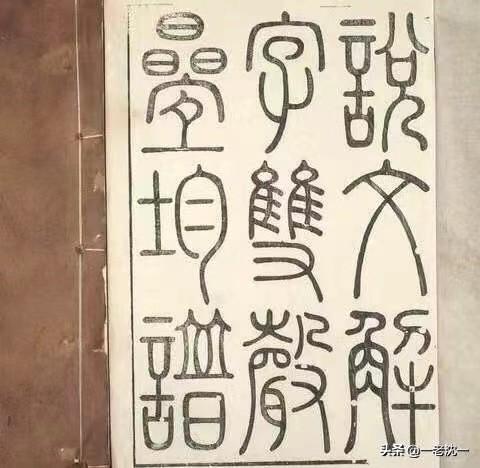 說文解
字雙聲
疊均譜
头条 @一老沈一